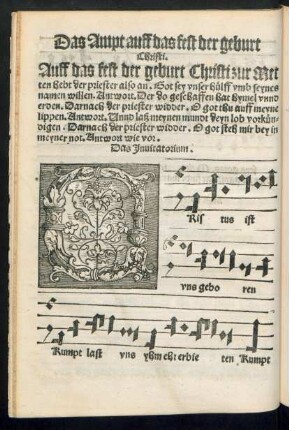 Das Ampt auff das fest der geburt
Christi.
Auff das fest der geburt Christi zur Met
ten hebt der priester also an. Got sey vnser hülff vmb seynes
namen willen. Antwort. Der do geschaffen hat hymel vnnd
erden. Darnach der priester widder. O got thu auff meyne
lippen. Antwort. Vnnd laß meynen mundt deyn lob vorkün-
digen. Darnach der priester widder. O got steh mir bey in
meyner not. Antwort wie vor.
Das Inuitatorium.
C
Ris tus ist
vns gebo ren
Kumpt last vns yhm eh: erbie ten Kumpt